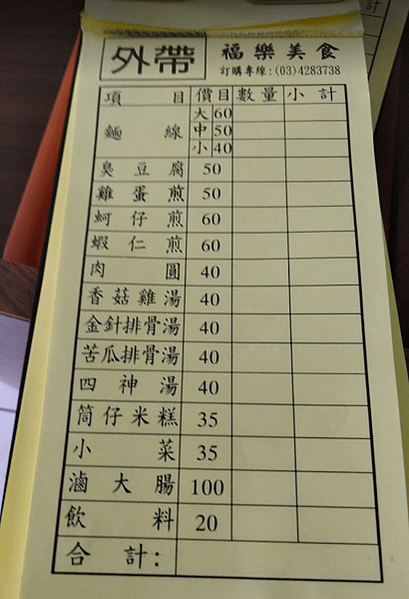 計
外帶
福樂美食
訂購專線:(03)4283738
項目 價目 數量 小計
麵線 大 60
中 50
小 40
臭豆腐 50
雞蛋煎 50
蚵仔煎 60
蝦仁煎 60
肉圓 40
香菇雞湯 40
金針排骨湯 40
苦瓜排骨湯 40
四神湯 40
筒仔米糕 35
小菜 35
滷大腸 100
飲料 20
合計: